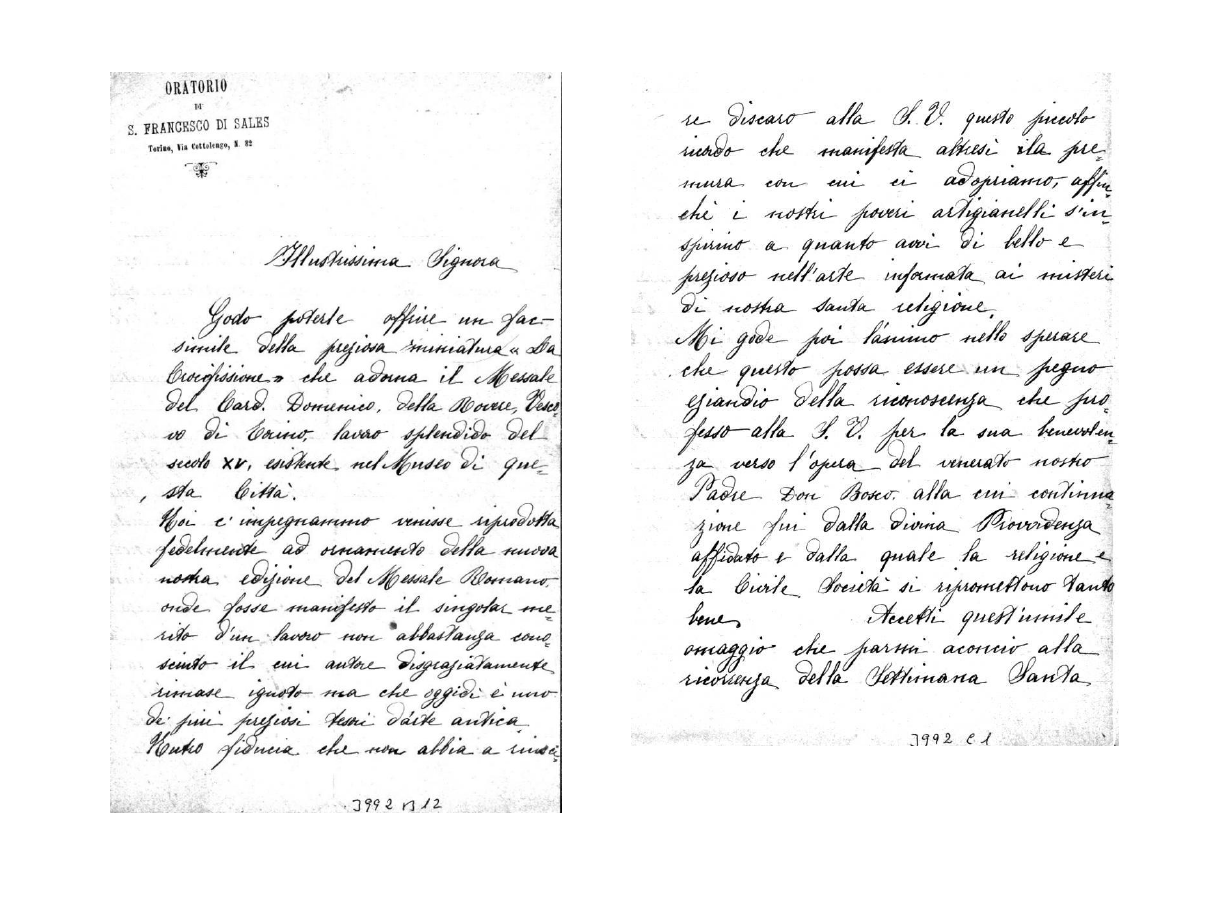 ORATORIO
DI
S. FRANCESCO DI SALES
Torino, Via Cottolengo, N. 32
Illustrissima Signora
Godo poterle offrire un fac-
simile della preziosa miniatura « La
Crocifissione » che adorna il Messale
del Card. Domenico, della Rovere, Vesco=
vo di Torino, lavoro splendido del
secolo XV, esistente nel Museo di que=
sta Città.
Noi c'impegnammo venisse riprodotta
fedelmente ad ornamento della nuova
nostra edizione del Messale Romano,
onde fosse manifesto il singolar me=
rito d'un lavoro non abbastanza cono=
sciuto il cui autore disgraziatamente
rimase ignoto ma che oggidì è uno
de' più preziosi tesori d'arte antica.
Nutro fiducia che non abbia a riusci=
J992 B 12
re discaro alla S. V. questo piccolo
ricordo che manifesta altresì la pre=
mura con cui ci adopriamo, affin=
chè i nostri poveri artigianelli s'in=
spirino a quanto avvi di bello e
prezioso nell'arte informata ai misteri
di nostra santa religione.
Mi gode poi l'animo nello sperare
che questo possa essere un pegno
eziandio della riconoscenza che pro=
fesso alla S. V. per la sua benevolen=
za verso l'opera del venerato nostro
Padre Don Bosco, alla cui continua
zione fui dalla divina Provvidenza
affidato e dalla quale la religione e
la Civile Società si ripromettono tanto
bene. Accetti quest'umile
omaggio che parmi acconcio alla
ricorrenza della Settimana Santa
J992 C 1